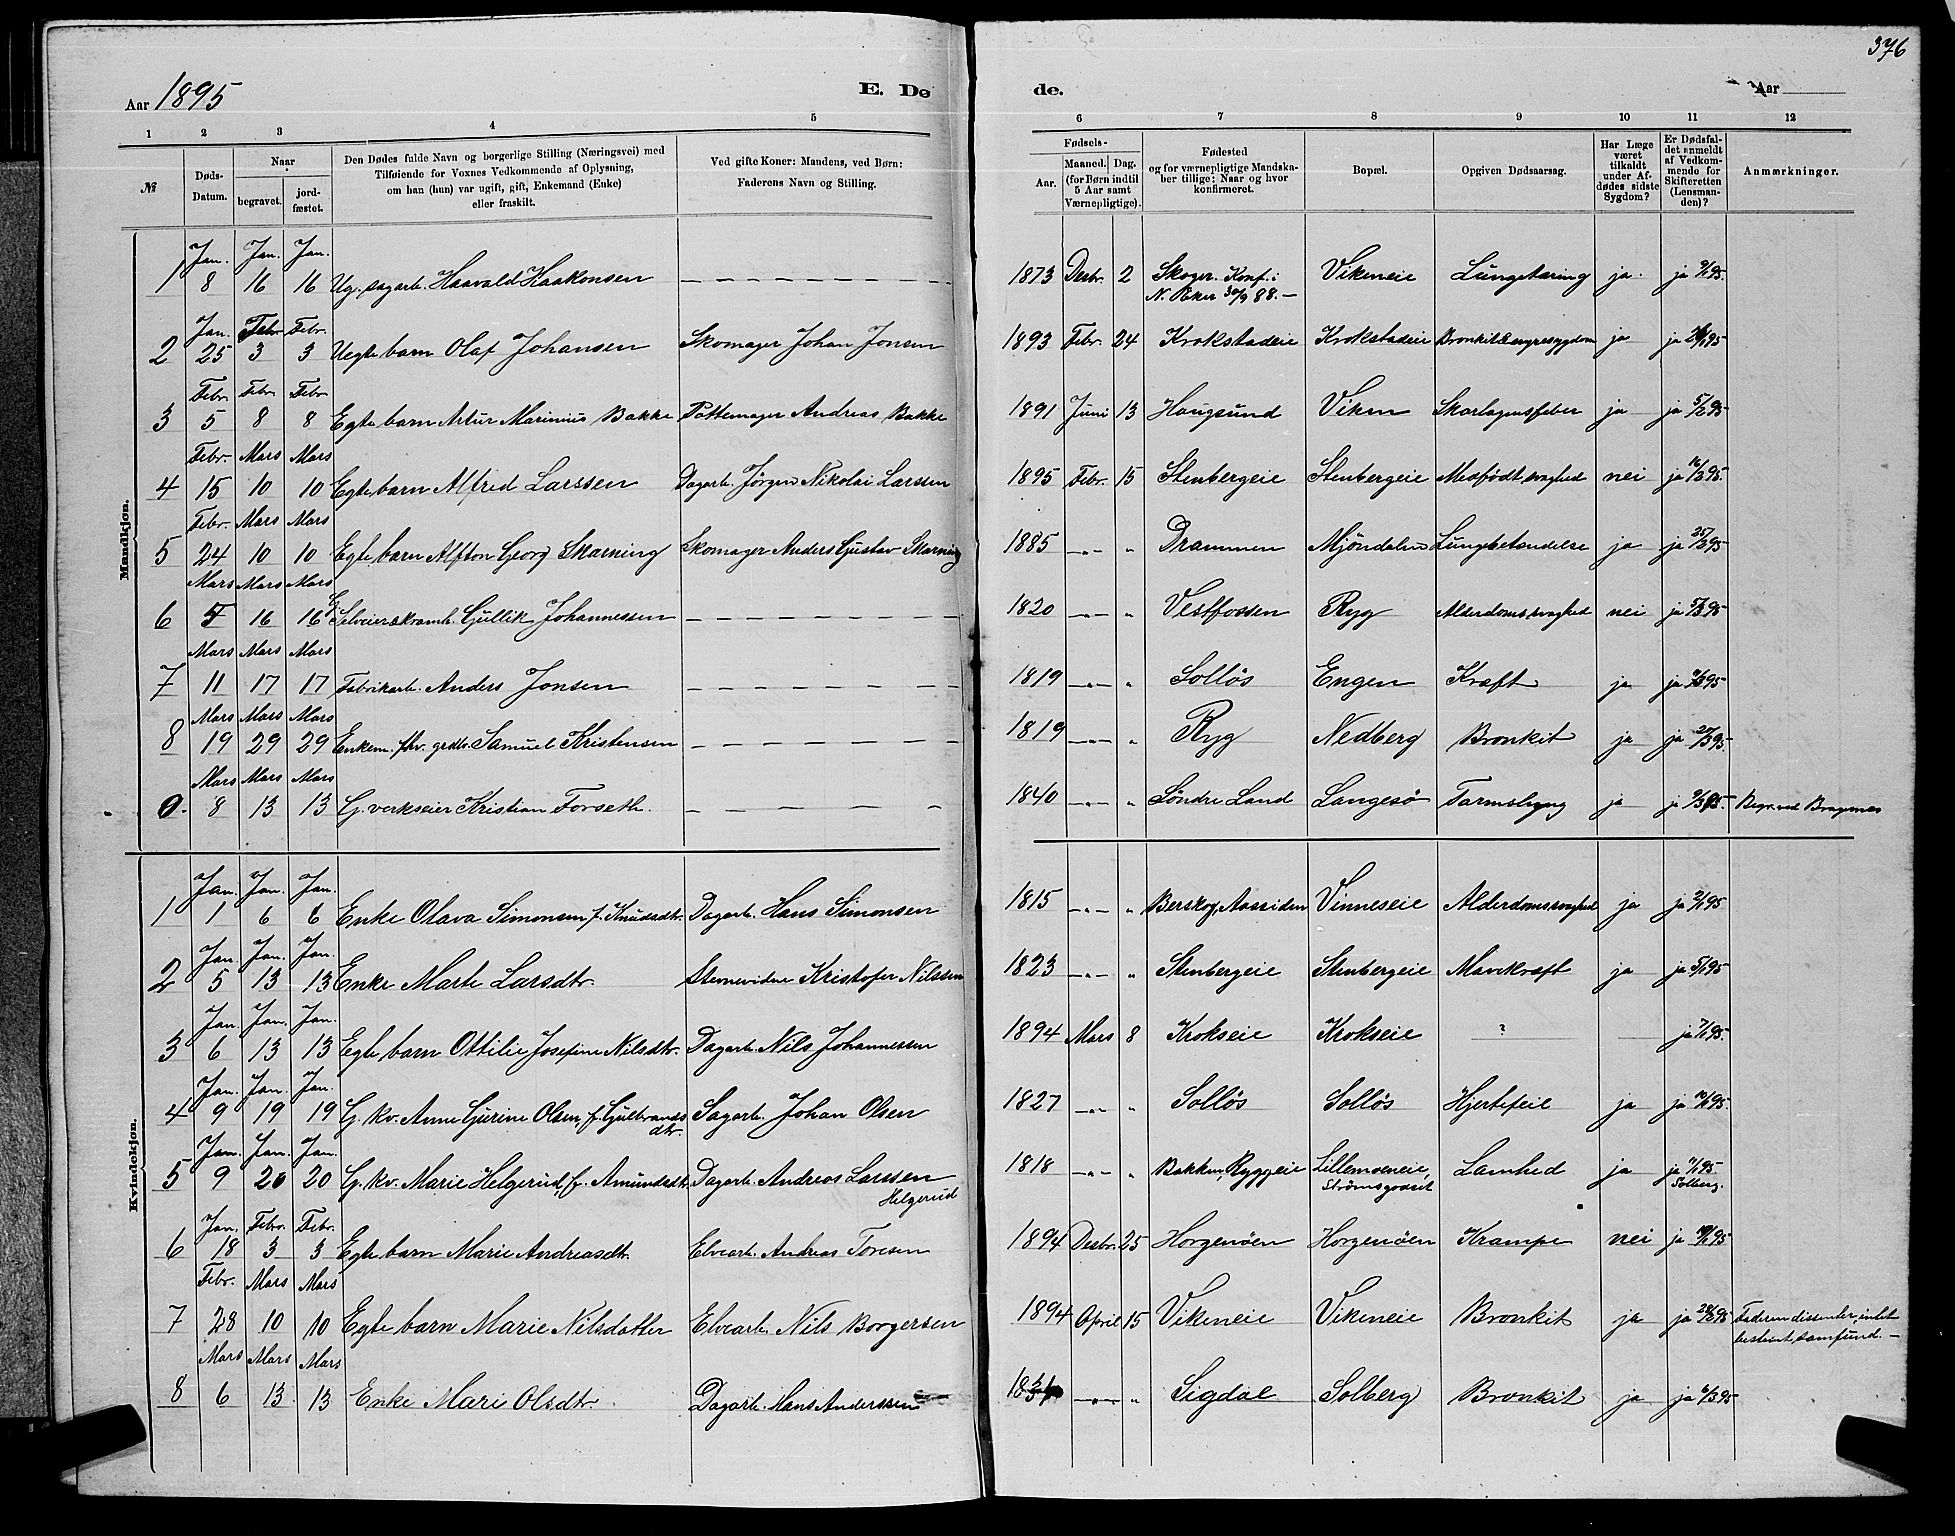 376
Aar 1895
E. Dø
de.
Aar
1 2 3 4 5 6 7 8 9 10 11 12
№
Døds-Datum.
Naar
begravet.
jord-fæstet.
Den Dødes fulde Navn og borgerlige Stilling (Næringsvei) med
Tilføiende for Voxnes Vedkommende af Oplysning,
om han (hun) var ugift, gift, Enkemand (Enke)
eller fraskilt.
Ved gifte Koner: Mandens, ved Børn:
Faderens Navn og Stilling.
Fødsels-
Aar.
Maaned. Dag.
(for Børn indtil
5 Aar samt
Værnepligtige).
Fødested
og for værnepligtige Mandska-
ber tillige: Naar og hvor
konfirmeret.
Bopæl.
Opgiven Dødsaarsag.
Har Læge
været
tilkaldt
under Af-
dødes sidste
Sygdom?
Er Dødsfal-
det anmeldt
af Vedkom-
mende for
Skifteretten
(Lensman-
den)?
Anmærkninger.
Mandkjøn.
Jan. Jan. Jan.
1 8 16 16 Ug. sagarb. Haavald Haakonsen 1873 Desbr. 2 Skoger. Konf. i Vikeneie Lungetæring ja. ja 9/1 95.
N. Eker 30/9 88.
Jan. Febr. Febr.
2 25 3 3 Uegte barn Olaf Johansen Skomager Johan Jonsen 1893 Febr. 24 Krokstadeie Krokstadeie ja ja
Febr. Febr. Febr.
3 5 8 8 Egte barn Artur Marinius Bakke Pottemager Andreas Bakke 1891 Juni 13 Hougsund Viken Skarlagensfeber ja ja 5/2 95
Febr. Mars Mars
4 15 10 10 Egte barn Alfred Larssen Dagarb. Jørgen Nikolai Larssen 1895 Febr. 15 Stenbergeie Stenbergeie Medfødt svaghed nei ja 16/2 95.
Febr. Mars Mars
5 24 10 10 Egte barn Alfton Georg Skarning Skomager Anders Gustav Skarning 1885 " " Drammen Mjøndalen Lungebetændelse ja ja 25/2 95
Mars Mars Mars
6 5 16 16 G. Selveierskarmb. Gullik Johannessen 1820 " " Vestfossen Ryg Alderdomssvaghed nei ja 5/3 95
Mars Mars Mars
7 11 17 17 Fabrikarb. Anders Jonsen 1819 " " Solløs Engen Kræft ja ja
Mars Mars Mars
8 19 29 29 Enkem. fhv. grdbr. Samuel Kristensen 1819 " " Ryg Nedberg Bronkit ja ja
Mars Mars Mars
0. 8 13 13 G. verkseier Kristian Forseth. 1840 " " Søndre Land Langesø Tarmslyng ja ja 9/3 95. Begr. ved Bragernes
Kvindekjøn.
Jan. Jan. Jan.
1 1 6 6 Enke Olava Simonsen f. Knudsdtr. Dagarb. Hans Simonsen 1815 " " Berskog, Aassiden Vinneseie Alderdomssvaghed ja ja 2/1 95
Jan. Jan. Jan.
2 5 13 13 Enke Marte Larsdtr. Stevnevidne Kristofer Nilssen 1823 " " Stenbergeie Stenbergeie Mavekræft ja ja 5/1 95
Jan. Jan. Jan.
3 6 13 13 Egte barn Ottilie Josefine Nilsdtr. Dagarb. Nils Johannessen 1894 Mars 8 Krokseie Krokseie ? ja 7/1 95.
Jan. Jan. Jan.
4 9 19 19 G. kv. Anne Gurine Olsen, f. Gulbrands Sagarb. Johan Olsen 1827 " " Solløs Solløs Hjertefeil ja ja 10/1 95.
dtr.
Jan. Jan. Jan.
5 9 20 20 G. kv. Marie Helgerud, f. Amundsdtr. Dagarb. Andreas Larssen 1818 " " Bakken, Ryggeie Lillemoeneie, Lamhed ja ja 11/1 95
Helgerud Strømsgodset Solberg.
Jan. Febr. Febr.
6 18 3 3 Egte barn Marie Andreasdtr. Elvearb. Andreas Toresen 1894 Desbr. 25 Horgenøen Horgenøen Krampe nei ja 19/1 95
Febr. Mars Mars
7 28 10 10 Egte barn Marie Nilsdatter Elvearb. Nils Borgersen 1894 April 15 Vikeneie Vikeneie Bronkit ja ja 28/2 95 Faderen dissenter, intet
bestemt samfund.
Mars Mars Mars
8 6 13 13 Enke Mari Olsdtr. Dagarb. Hans Anderssen " " Sigdal Solberg Bronkit ja ja 6/3 95